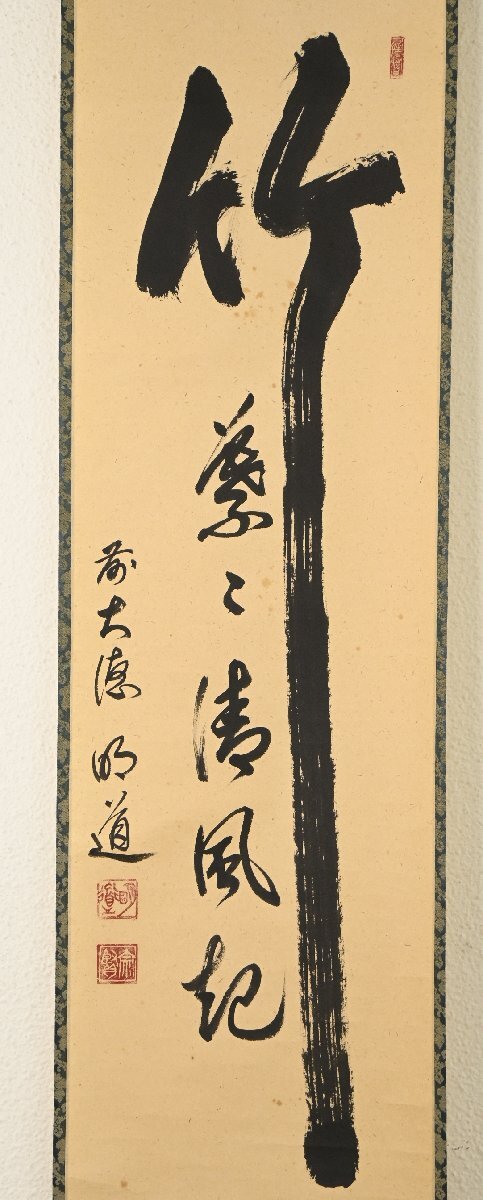 竹
葉〻清風起
前大徳 明道